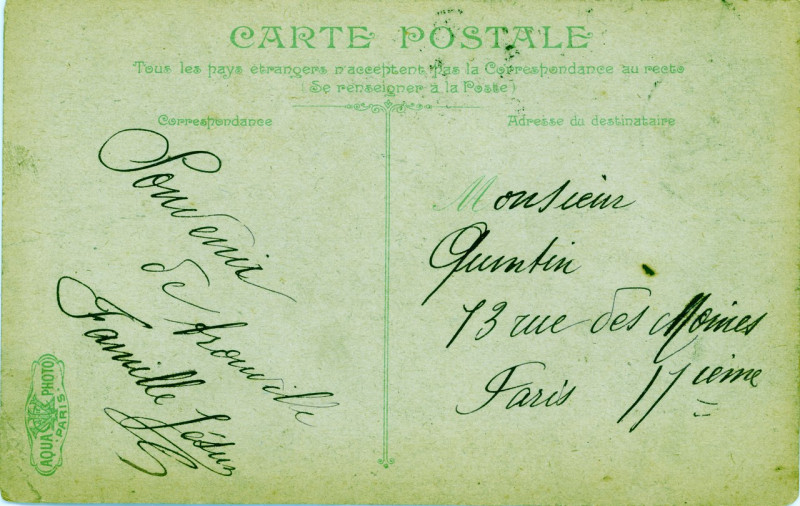 CARTE POSTALE
Tous les pays étrangers n'acceptent pas la Correspondance au recto
(Se renseigner à la Poste)
Correspondance
Adresse du destinataire
Souvenir
de trouville
Famille
Monsieur
Quintin
73 rue des Moines
Paris 17ieme
AQUA PHOTO
PARIS